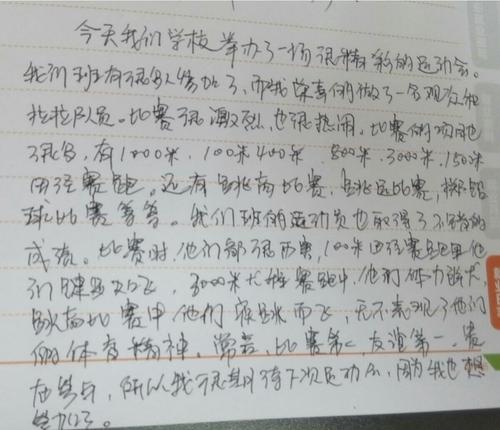 今天我们学校举办了一场很精彩的运动会。
我们班有很多人参加了，而我荣幸的做了一名观众和
拉拉队员。比赛很激烈，也很热闹。比赛的项目也
很多，有1000米，100米 400米，800米，3000米，1500米
田径赛跑。还有跳高比赛，跳远比赛，掷铅
球比赛等等。我们班的运动员也取得了不错的
成绩。比赛时，他们都很厉害，100米田径赛跑里他
们健步如飞，3000米长跑赛跑中，他们体力强大，
跳高比赛中他们跃跳而飞，无不表现了他们
的体育精神。常言，比赛第二，友谊第一。贵
在参与，所以我很期待下次运动会，因为我也想
参加。